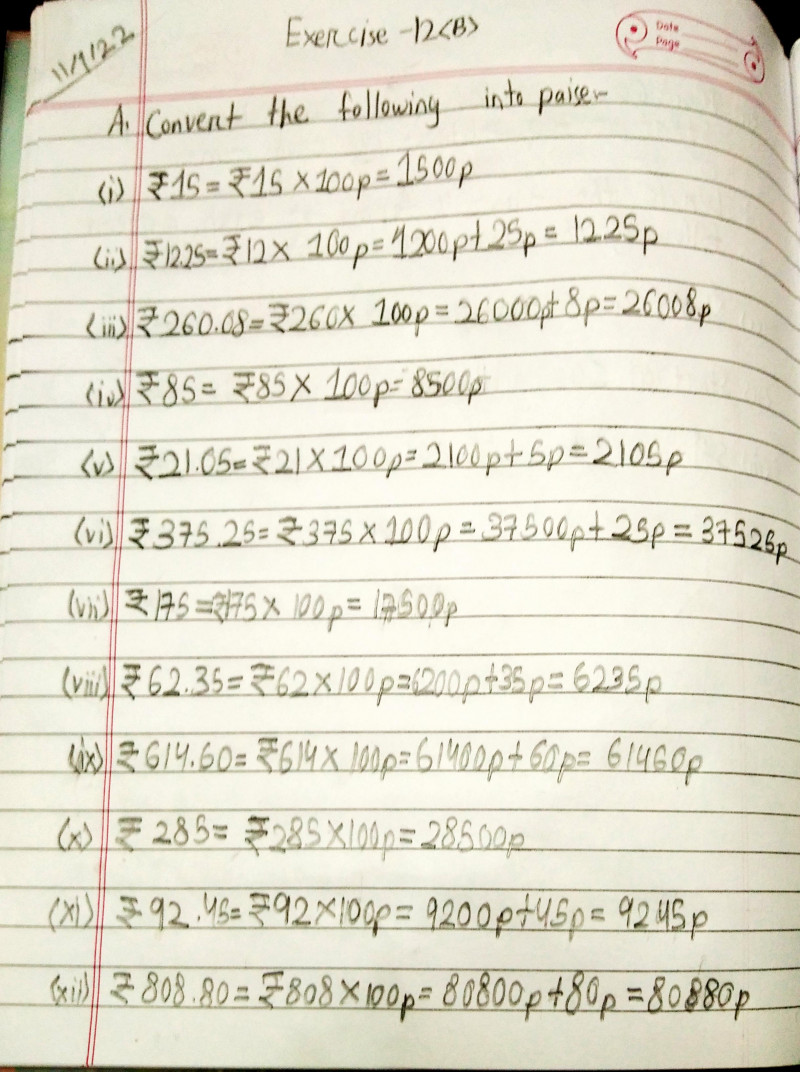 11/9/22
Exercise -12(B)
Date
Page
A. Convert the following into paise-
(i) ₹15 = ₹15 × 100p = 1500p
(ii) ₹12.25 = ₹12 × 100p = 1200p + 25p = 1225p
(iii) ₹260.08 = ₹260 × 100p = 26000p + 8p = 26008p
(iv) ₹85 = ₹85 × 100p = 8500p
(v) ₹21.05 = ₹21 × 100p = 2100p + 5p = 2105p
(vi) ₹375.25 = ₹375 × 100p = 37500p + 25p = 37525p
(vii) ₹175 = ₹175 × 100p = 17500p
(viii) ₹62.35 = ₹62 × 100p = 6200p + 35p = 6235p
(ix) ₹614.60 = ₹614 × 100p = 61400p + 60p = 61460p
(x) ₹285 = ₹285 × 100p = 28500p
(xi) ₹92.45 = ₹92 × 100p = 9200p + 45p = 9245p
(xii) ₹808.80 = ₹808 × 100p = 80800p + 80p = 80880p